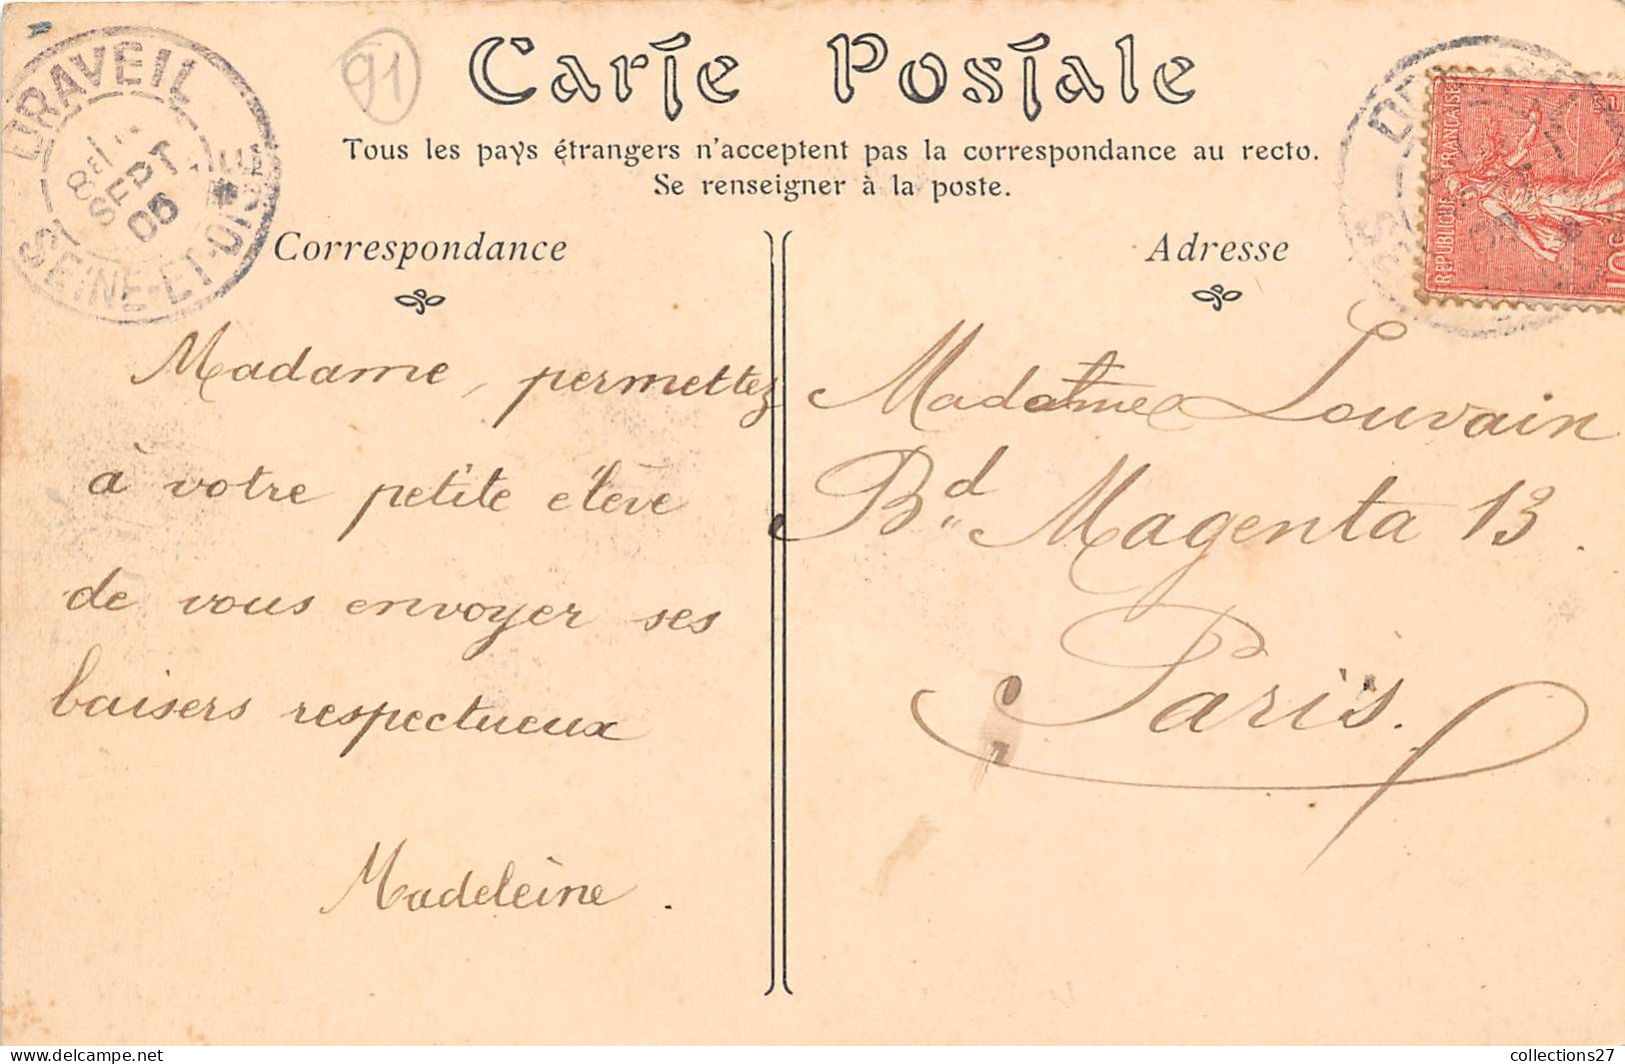 Carte Postale
91
Tous les pays étrangers n'acceptent pas la correspondance au recto.
Se renseigner à la poste.
DRAVEIL
SEPT
SEINE-ET-OISE
REPUBLIQUE FRANÇAISE
Correspondance
Madame, permettez
à votre petite élève
de vous envoyer ses
baisers respectueux
Madeleine.
Adresse
Madame Louvain
Bd Magenta 13.
Paris.
collections27